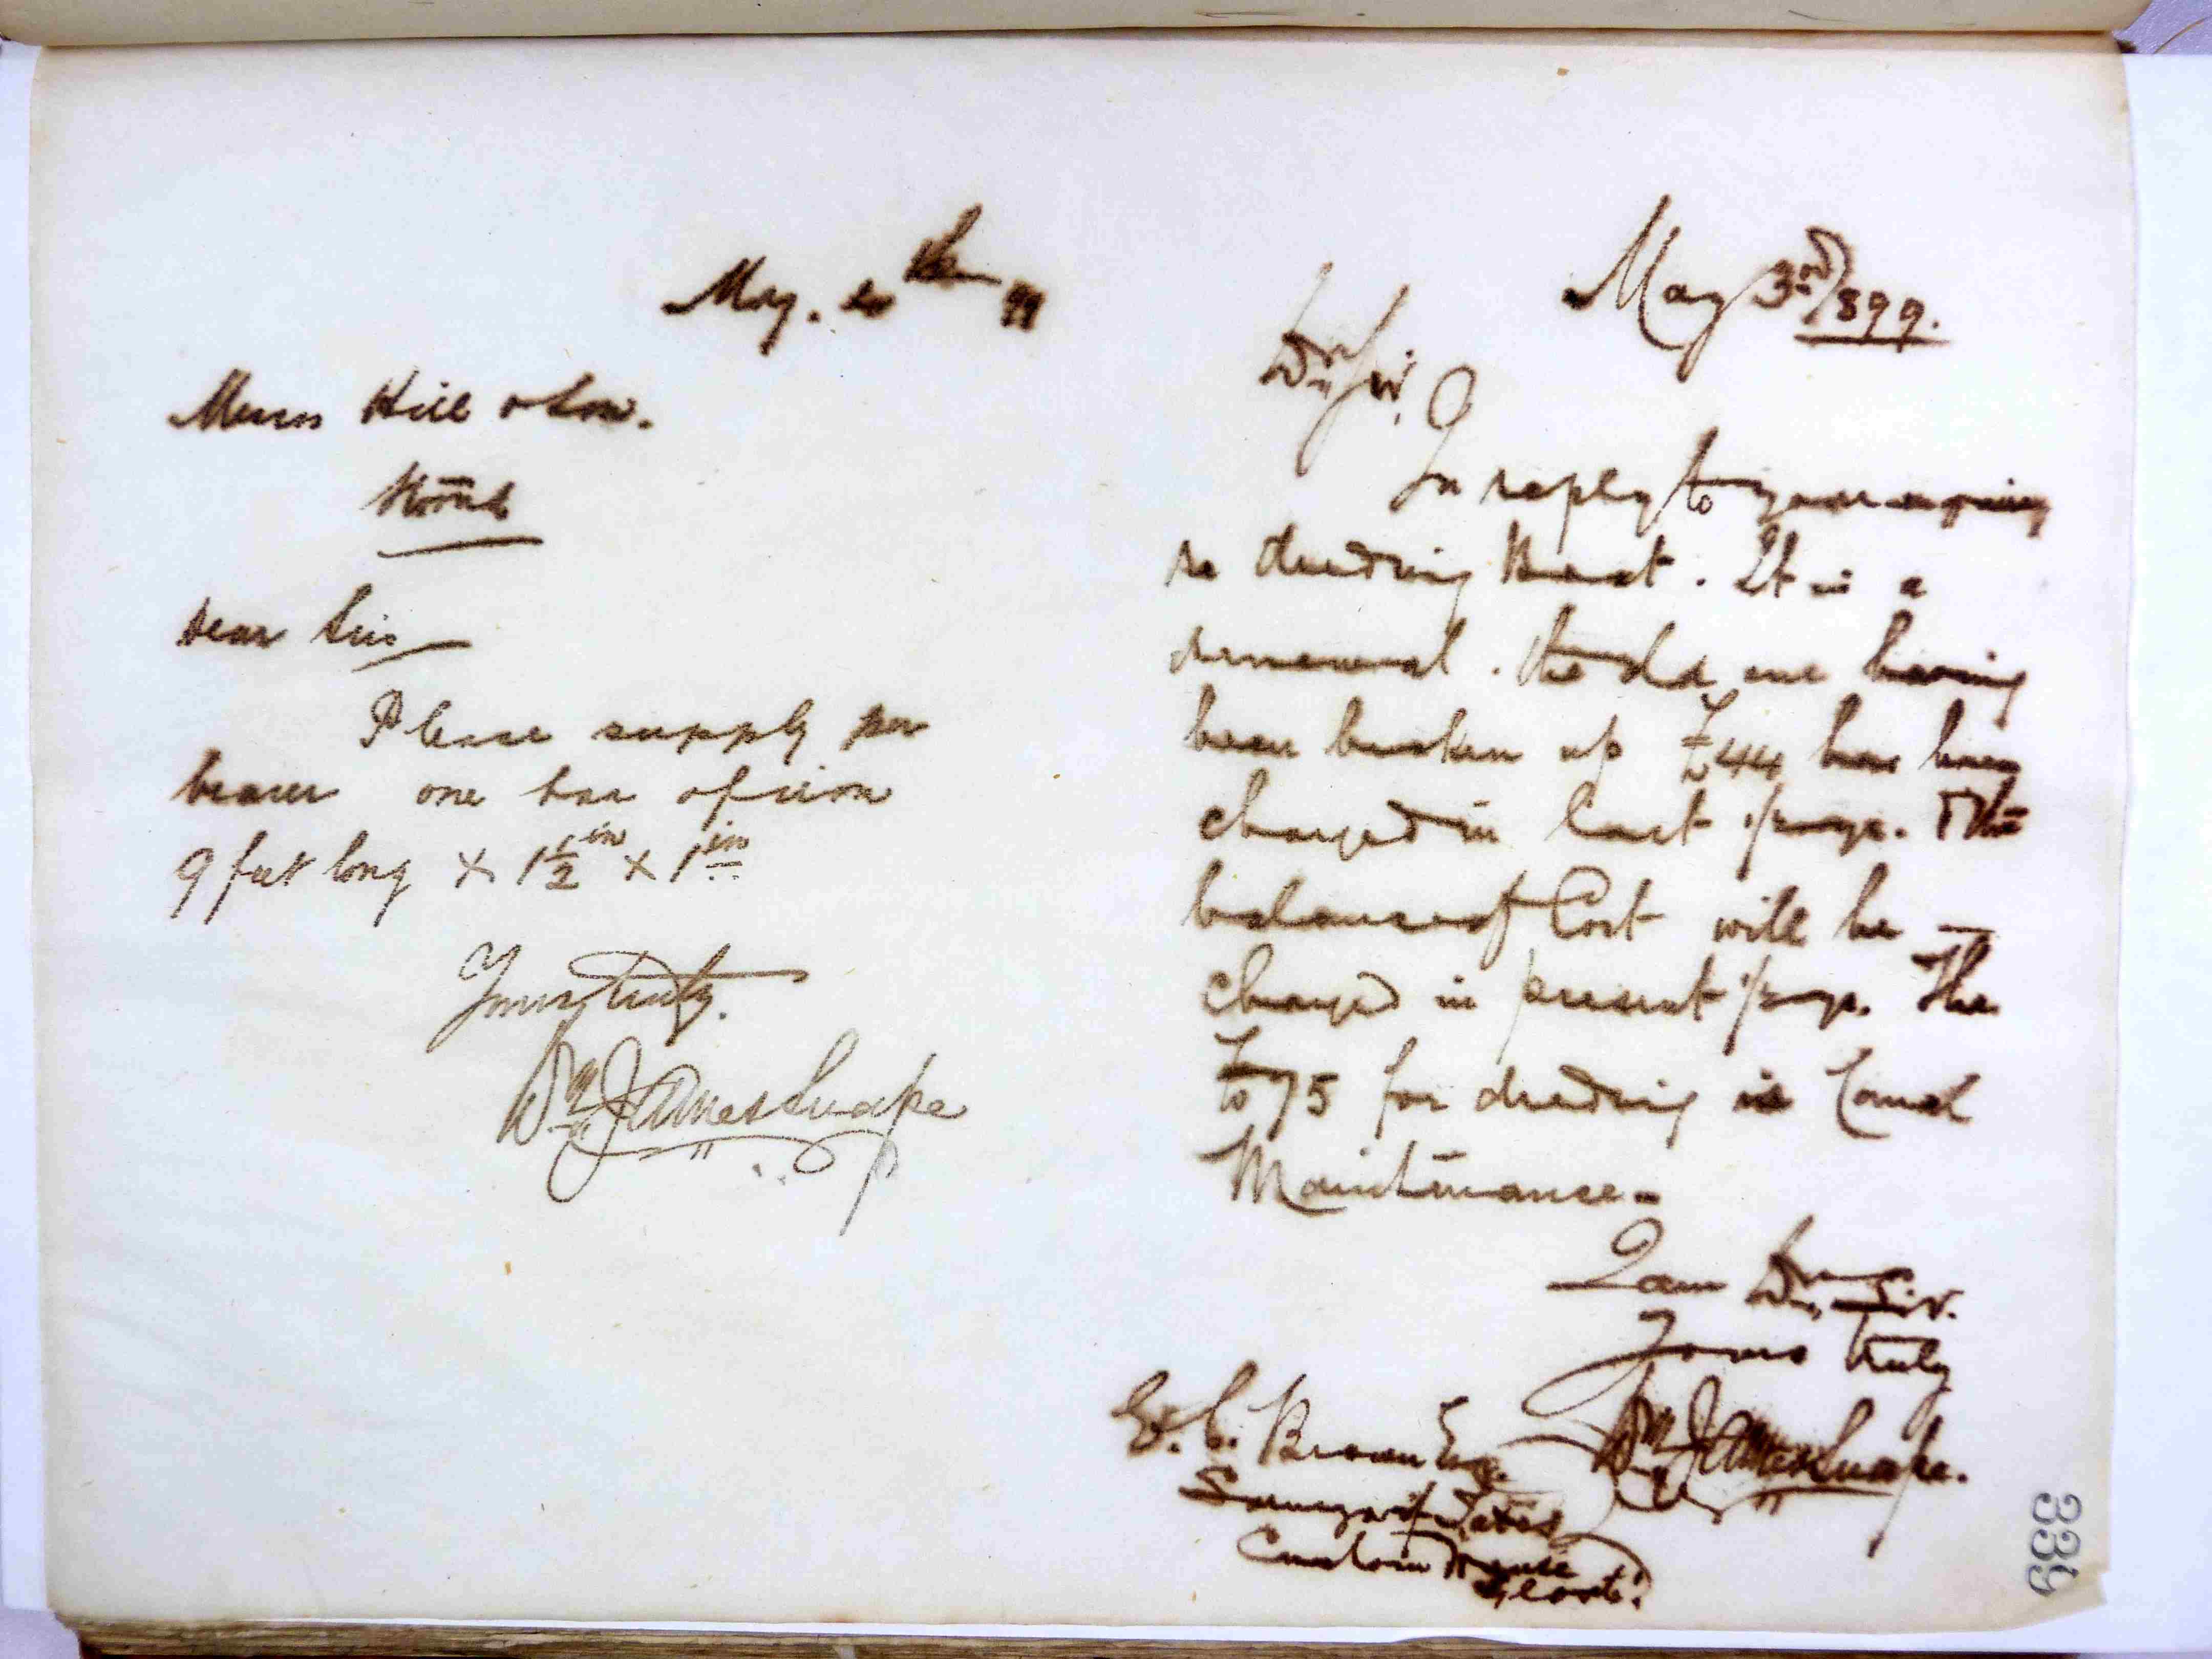 May. 4th 99
Messrs Hill & Son.
Dear Sirs
Please supply per
bearer one bar of iron
9 feet long × 1½in × 1in
Yours truly.
Wm James Snape
May 3rd 1899.
Dr Sir,
In reply to your enquiry
re dredging Boat. It is a
renewal. the old one having
been broken up £44 has been
charged in last
balance of Cost will be
charged in present The
£75 for dredging is Canal
Maintenance.
I am Dr Sir.
Yours truly
Wm James Snape.
E. C. Brown Esq.
Surveyor of Taxes
Custom House
Gloster.
339